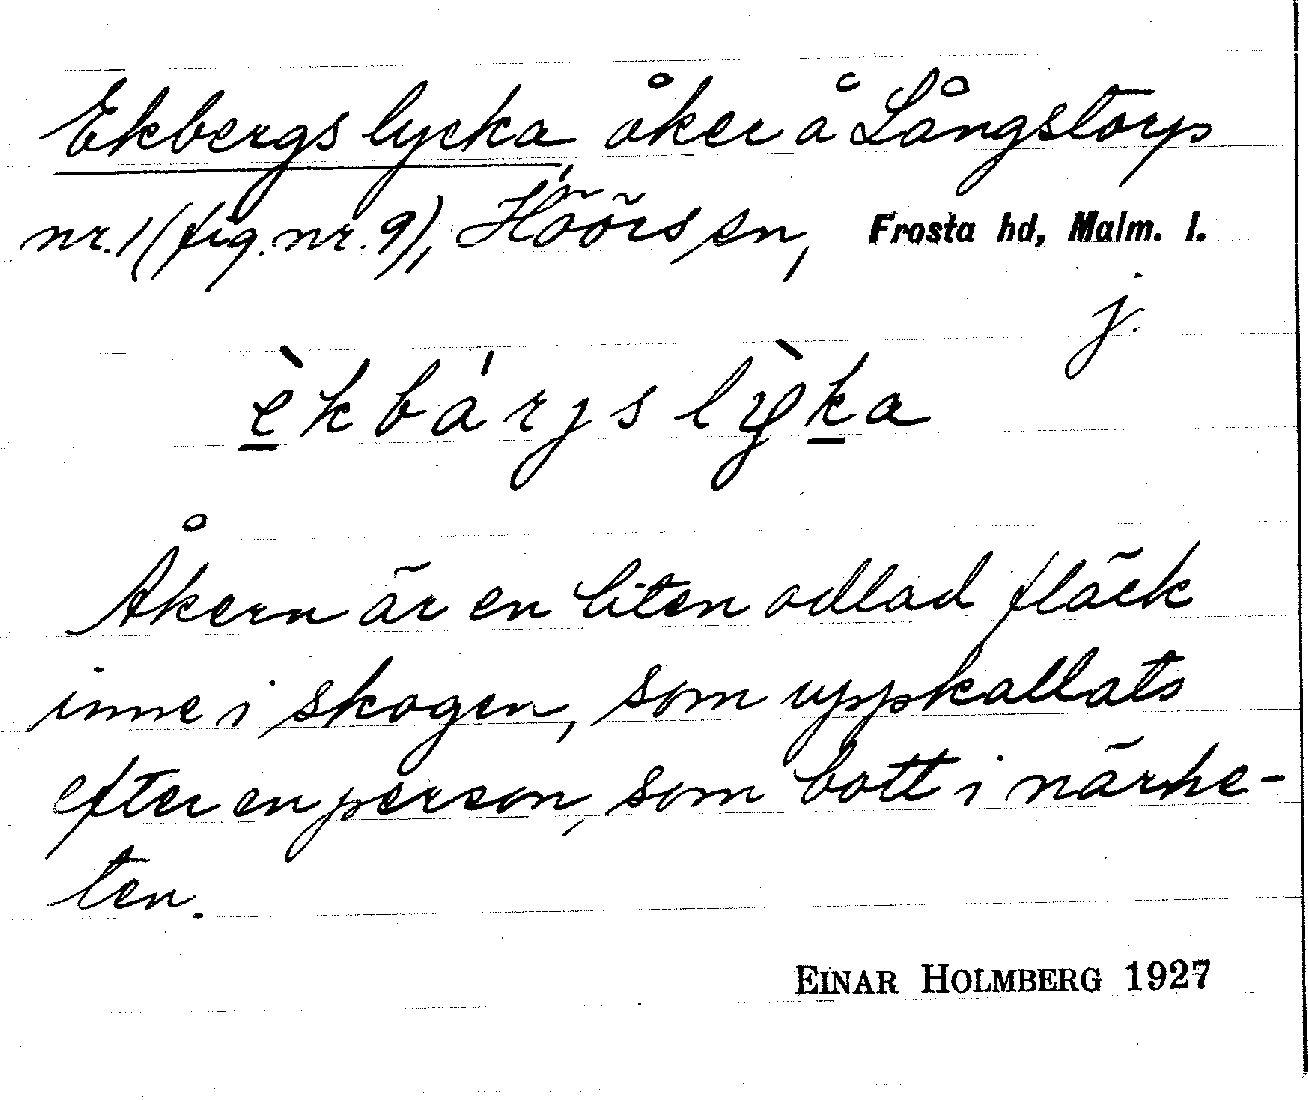 Ekbergslycka, åker å Långstorp
nr. 1 (fig. nr. 9), Höörs sn, Frosta hd, Malm. l.
j.
èkbárjslỳka
Åkern är en liten odlad fläck
inne i skogen, som uppkallats
efter en person, som bott i närhe-
ten.
EINAR HOLMBERG 1927